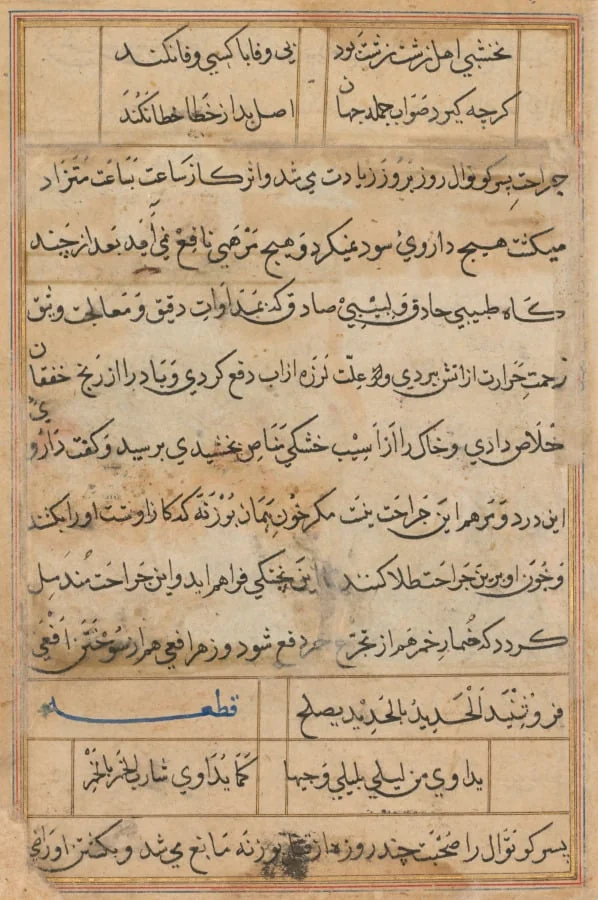 نخشبی اهل زشت زشت بود بی وفا با کسی وفا نکند
کرچه کیرد صواب جمله جهان اصل بد از خطا خطا نکند
جراحت پسر کوتوال روز بروز زیادت می شد و اثر کاز ساعت بساعت متزاد
میکشت هیچ داروی سود نمیکرد و هیچ مرهمی نافع نمی آمد بعد از چند
کاه طبیبی حاذق و لبیبی صادق که بمداوات دقیق و معالجت وثیق
زحمت حرارت از اتش ببردی و علت لرزه از اب دفع کردی و باد را از رنج خفقان
خلاص دادی و خاک را از اسیب خشکی مناص بخشیدی برسید و کفت داروی
این درد و مرهم این جراحت نیست مکر خون همان بوزنه که کاز اوست او را بکشند
و خون او برین جراحت طلا کنند این پختکی فراهم اید و این جراحت مندمل
کردد که خمار خمر هم از تجرع دفع شود و زهر افعی هم از سوختن افعی
فرو نشیند الحدید بالحدید یصلح قطعه
یداوی من لیلی بلیلی وحبها کما یداوی شارب الخمر بالخمر
پسر کوتوال را صحبت چند روزه از بوزنه مانع می شد و بکشتن او راضی